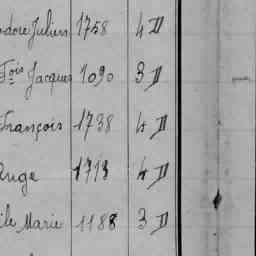 odore Julien 1758 4 D
Fois Jacques 1090 3 D
François 1738 4 D
Ange 1713 4 D
ile Marie 1188 3 D